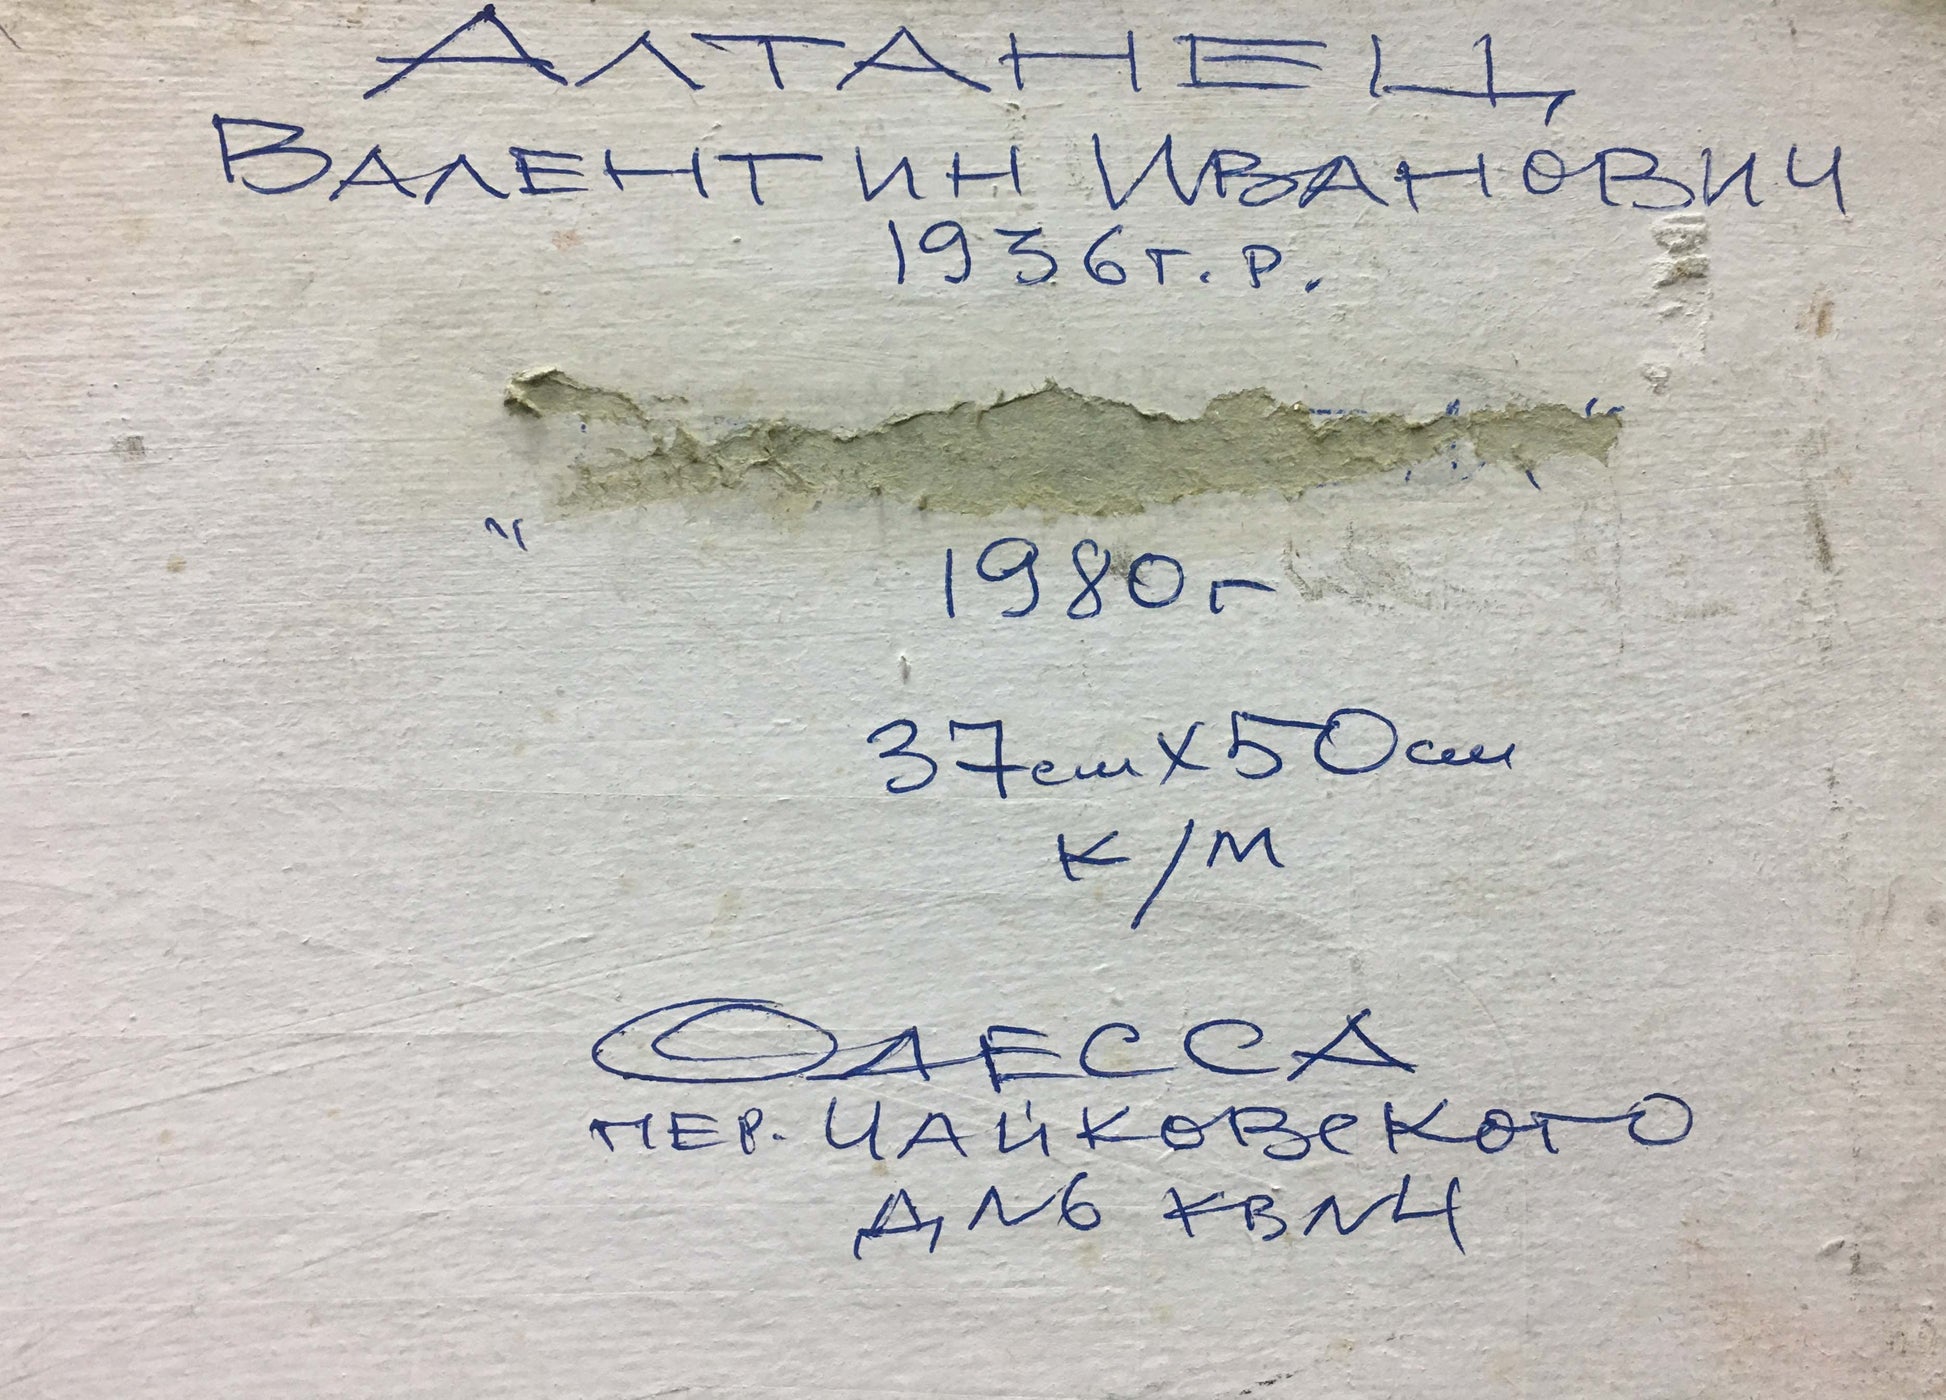 АЛТАНЕЦ
ВАЛЕНТИН ИВАНОВИЧ
1936г.р.
"
1980г
37смх50см
к/м
ОДЕССА
ПЕР. ЧАЙКОВСКОГО
Д№6 КВ№4